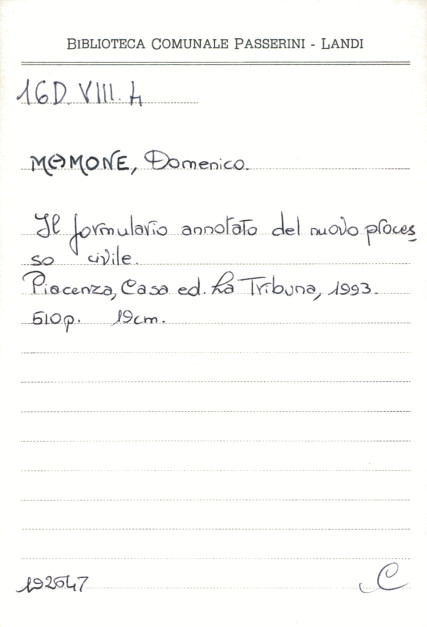 BIBLIOTECA COMUNALE PASSERINI - LANDI
16D. VIII. 4
MAMONE, Domenico.
Il formulario annotato del nuovo proces
so civile.
Piacenza, Casa ed. La Tribuna, 1993.
510p. 19cm.
192647
C